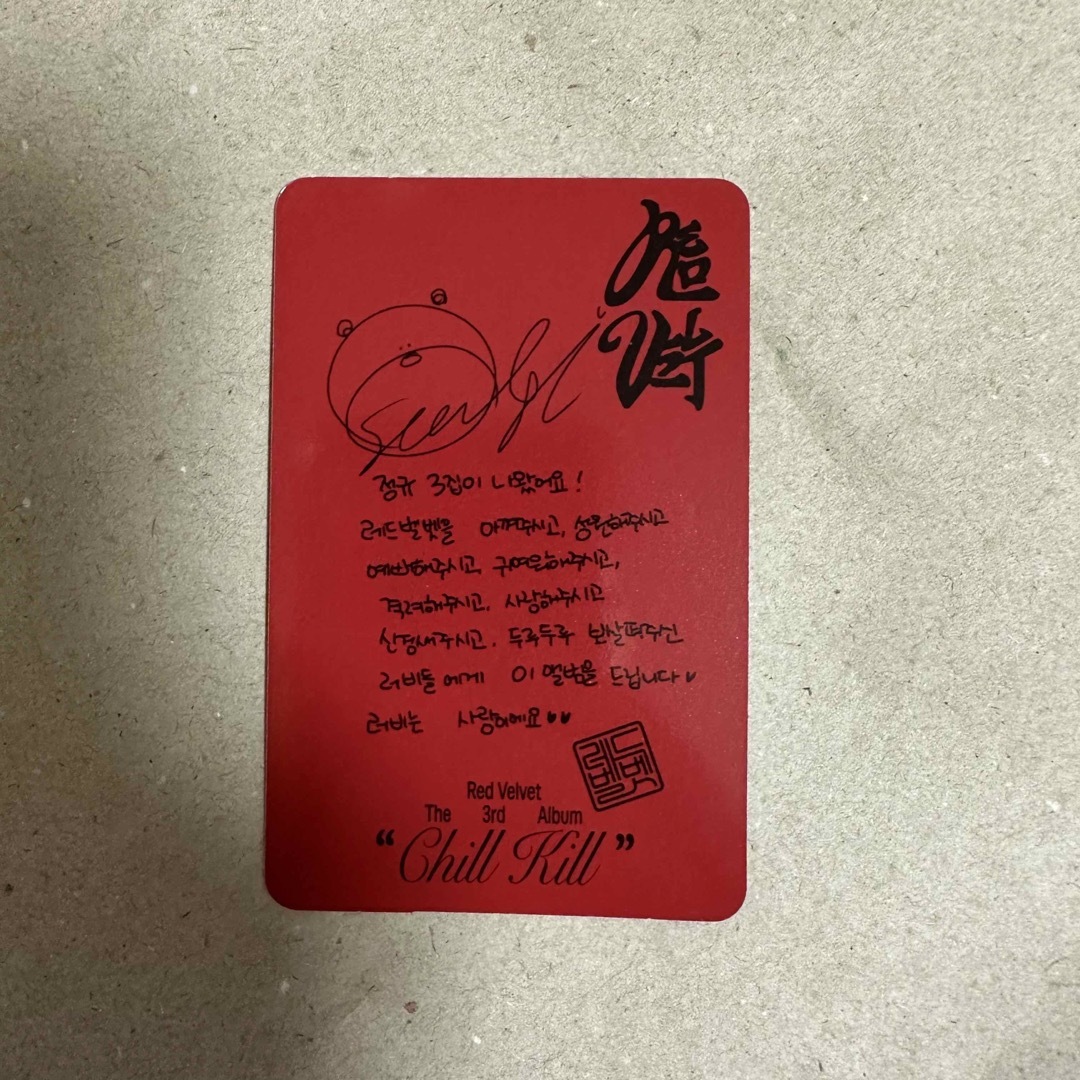 Seulgi
정규 3집이 나왔어요!
레드벨벳을 아껴주시고, 응원해주시고
예뻐해주시고, 귀여워해주시고,
격려해주시고, 사랑해주시고
신경써주시고, 두루두루 보살펴주신
러비들에게 이 앨범을 드립니다♥
러비는 사랑이에요♥♥
레드
벨벳
Red Velvet
The 3rd Album
“Chill Kill”